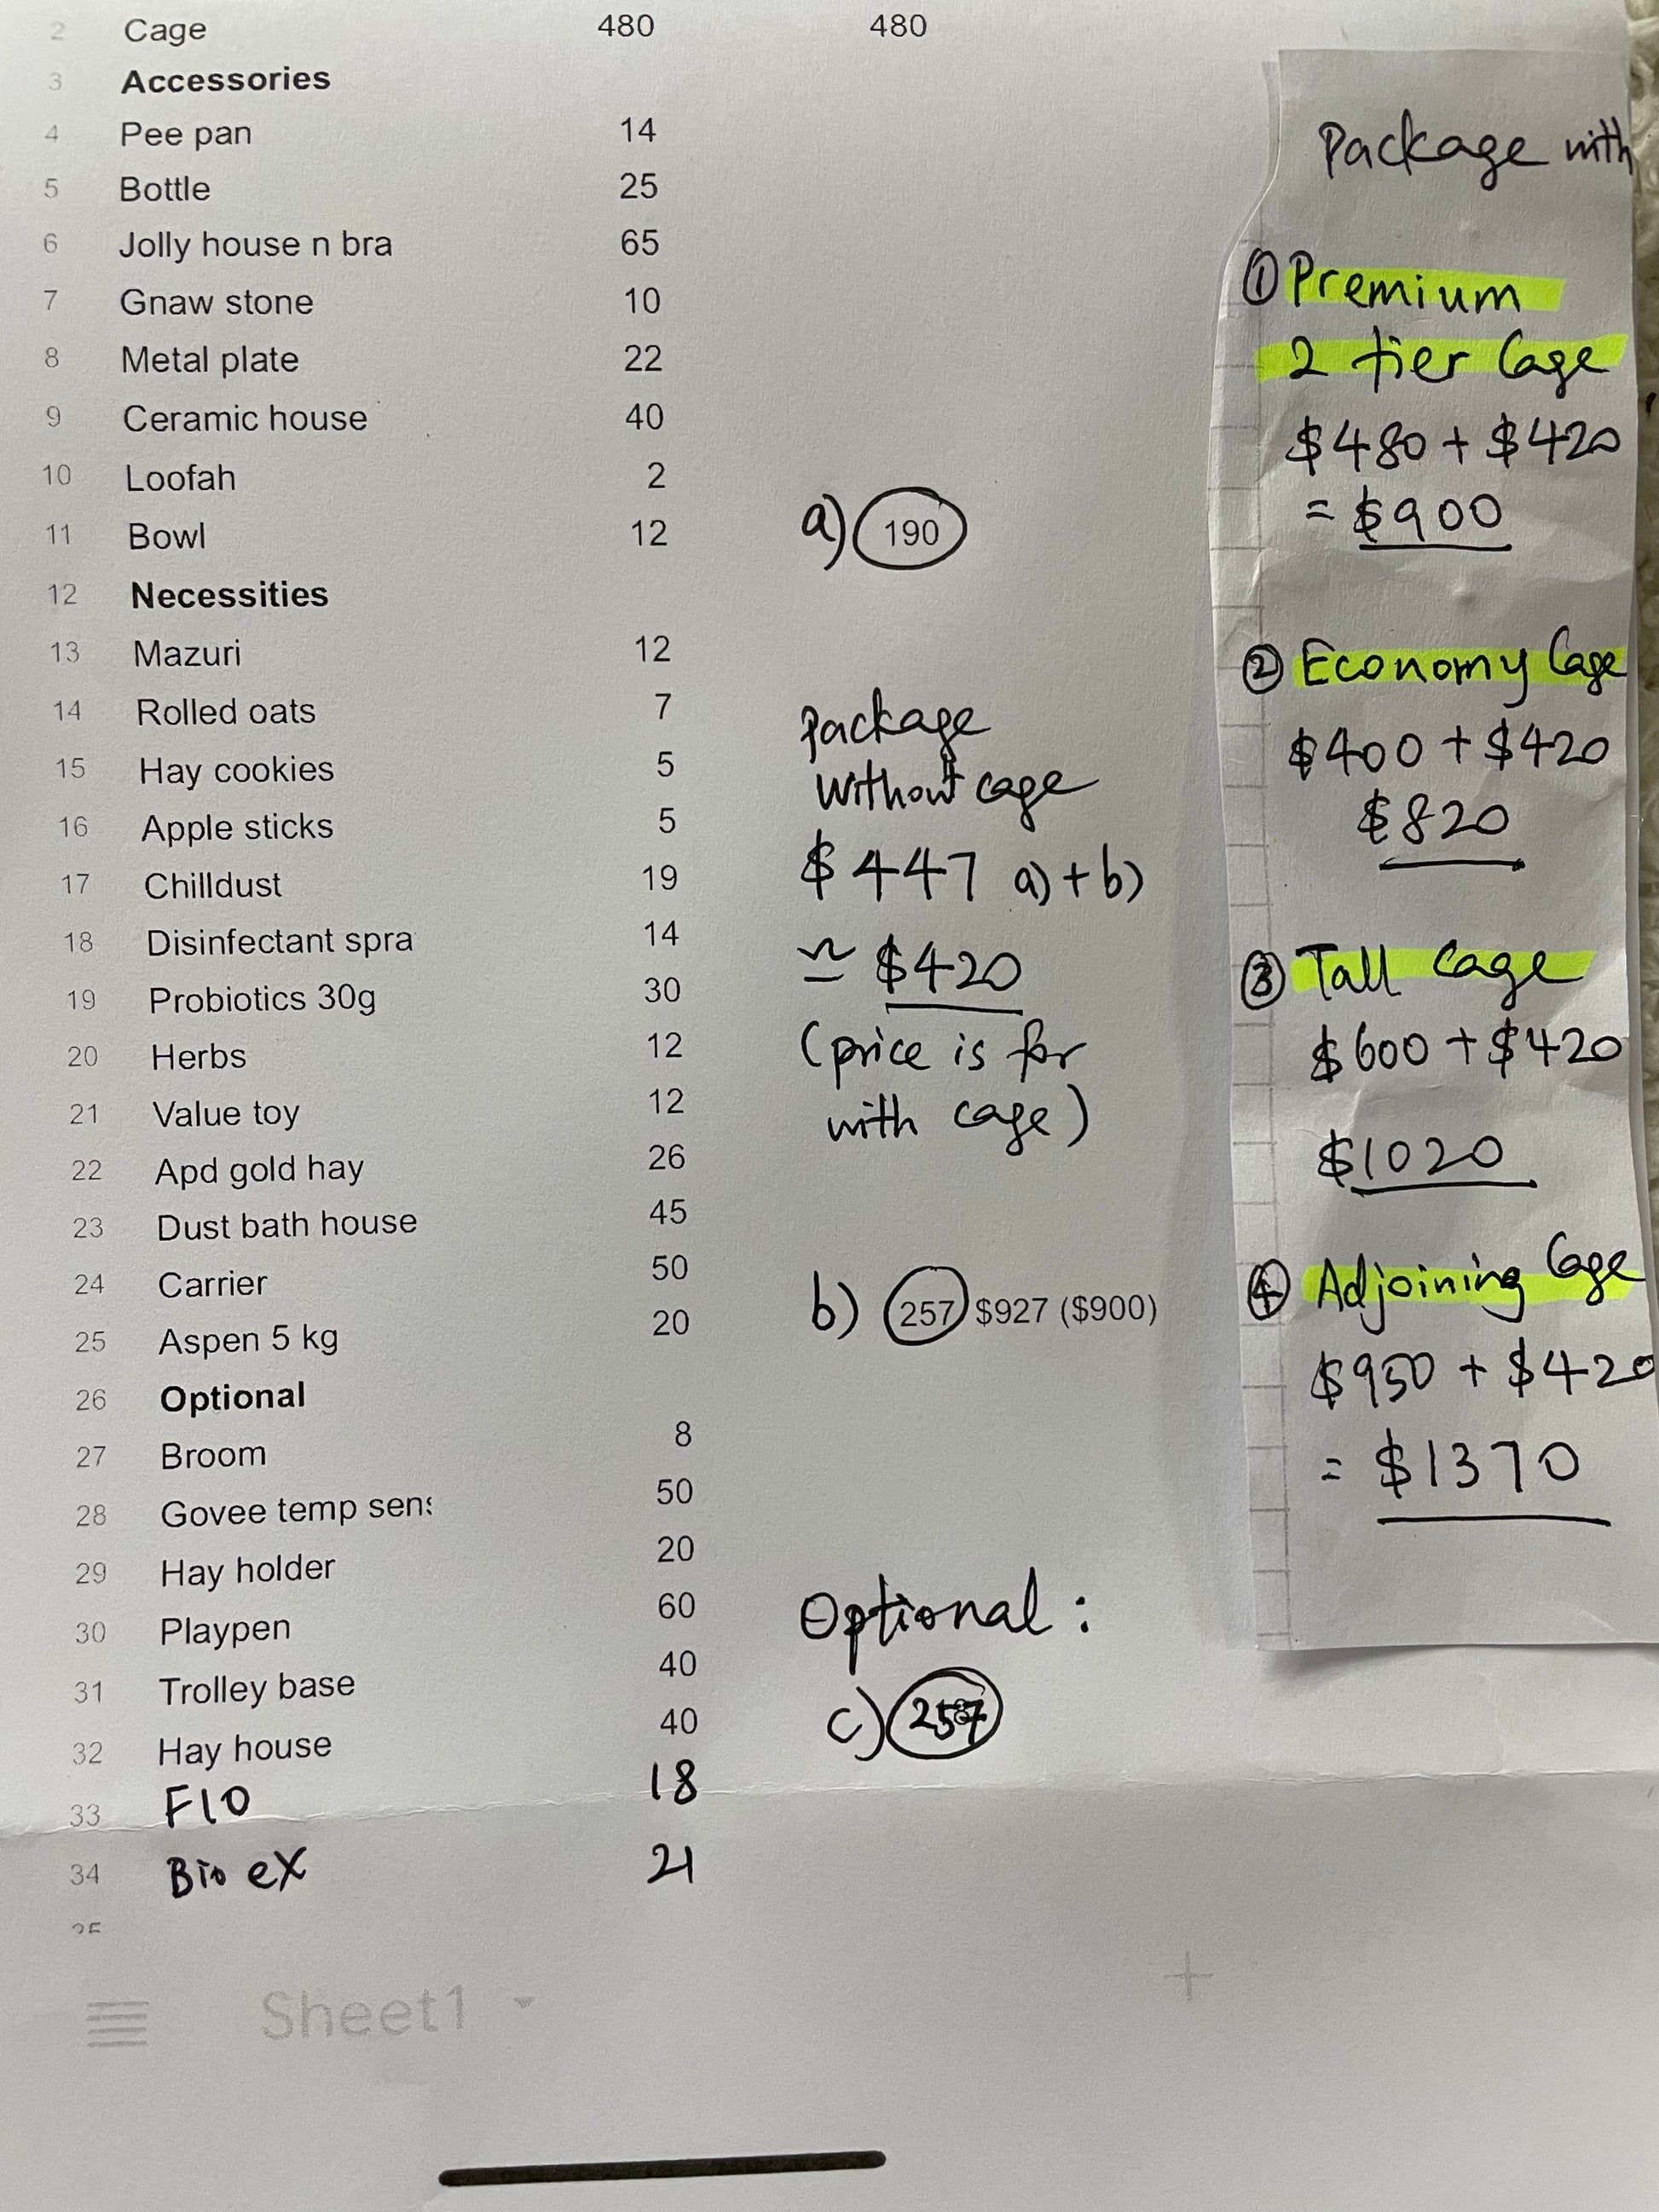 2 Cage 480 480
3 Accessories
4 Pee pan 14
5 Bottle 25
6 Jolly house n bra 65
7 Gnaw stone 10
8 Metal plate 22
9 Ceramic house 40
10 Loofah 2
11 Bowl 12 a) 190
12 Necessities
13 Mazuri 12
14 Rolled oats 7
15 Hay cookies 5
16 Apple sticks 5
17 Chilldust 19
18 Disinfectant spra 14
19 Probiotics 30g 30
20 Herbs 12
21 Value toy 12
22 Apd gold hay 26
23 Dust bath house 45
24 Carrier 50
25 Aspen 5 kg 20 b) 257 $927 ($900)
26 Optional
27 Broom 8
28 Govee temp sens 50
29 Hay holder 20
30 Playpen 60
31 Trolley base 40
32 Hay house 40
33 F10 18
34 Bio eX 21
35
Sheet1
+
Package
without cage
$447 a) + b)
≃ $420
(price is for
with cage)
Optional :
c) 257
Package with
① Premium
2 tier Cage
$480 + $420
= $900
② Economy Cage
$400 + $420
$820
③ Tall Cage
$600 + $420
$1020
④ Adjoining Cage
$950 + $420
= $1370